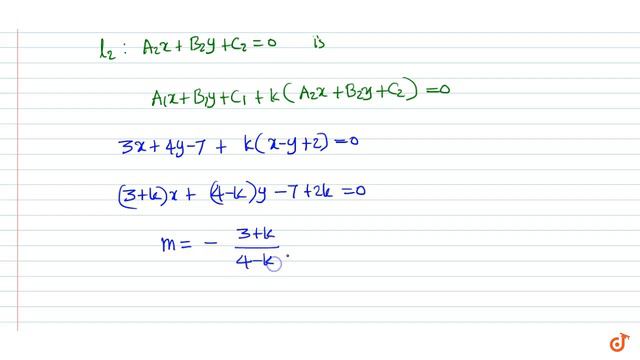 l₂ : A₂x + B₂y + C₂ = 0 is
A₁x + B₁y + C₁ + k ( A₂x + B₂y + C₂ ) = 0
3x + 4y - 7 + k ( x - y + 2 ) = 0
(3+k) x + (4-k) y - 7 + 2k = 0
m = - (3+k)/(4-k)
doubtnut